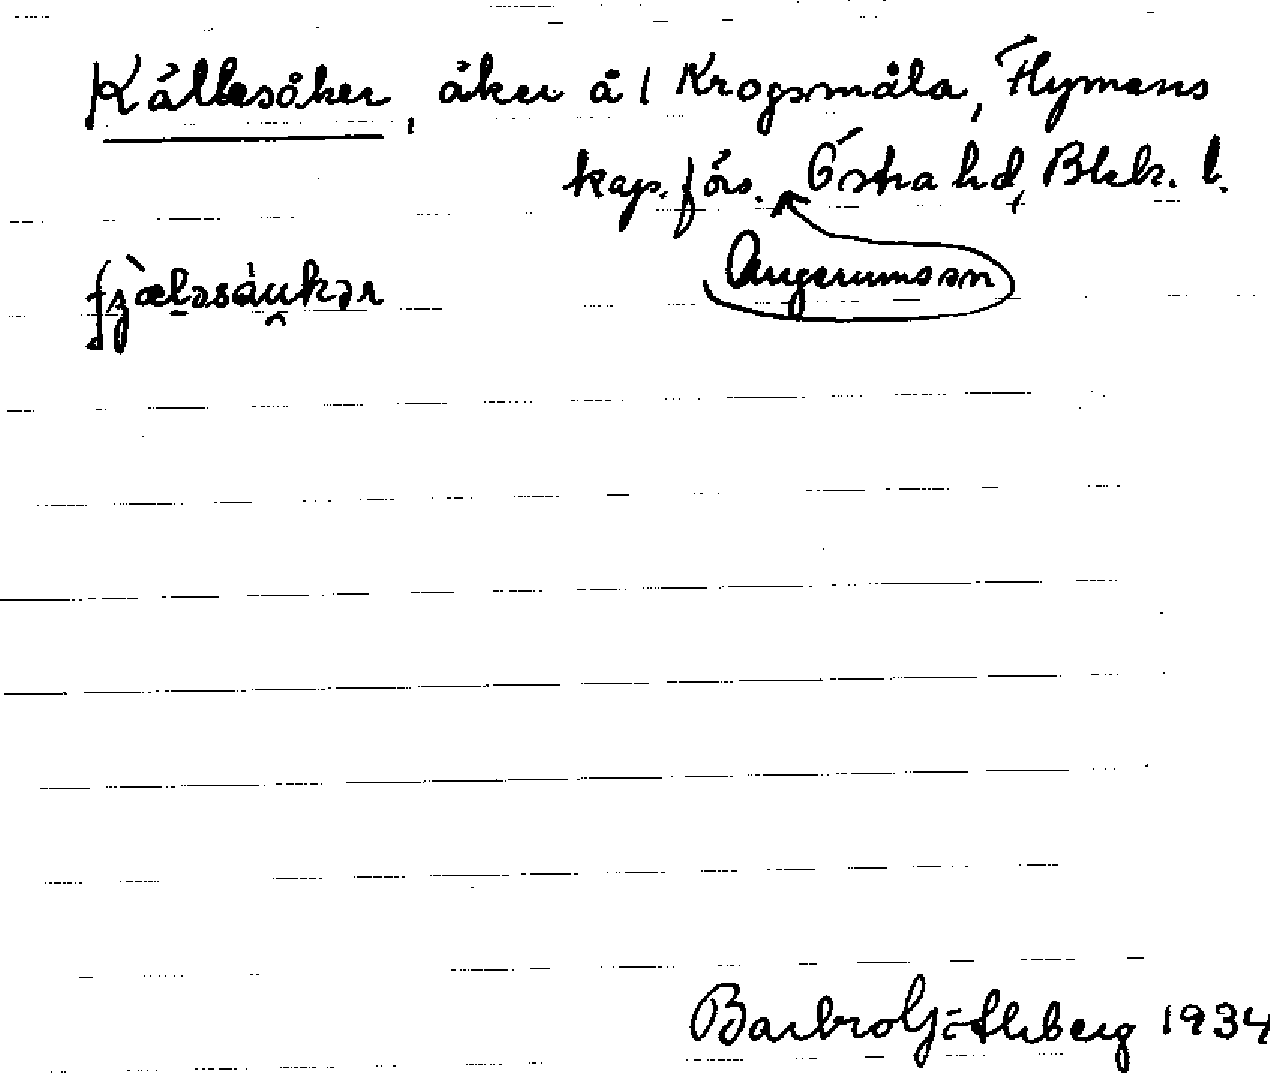 Källesåker, åker å 1 Krogsmåla, Flymens
kap. förs. Östra hd, Blek. l.
Augerums sn
fʒæ̀lesàukər
Barbro Göthberg 1934